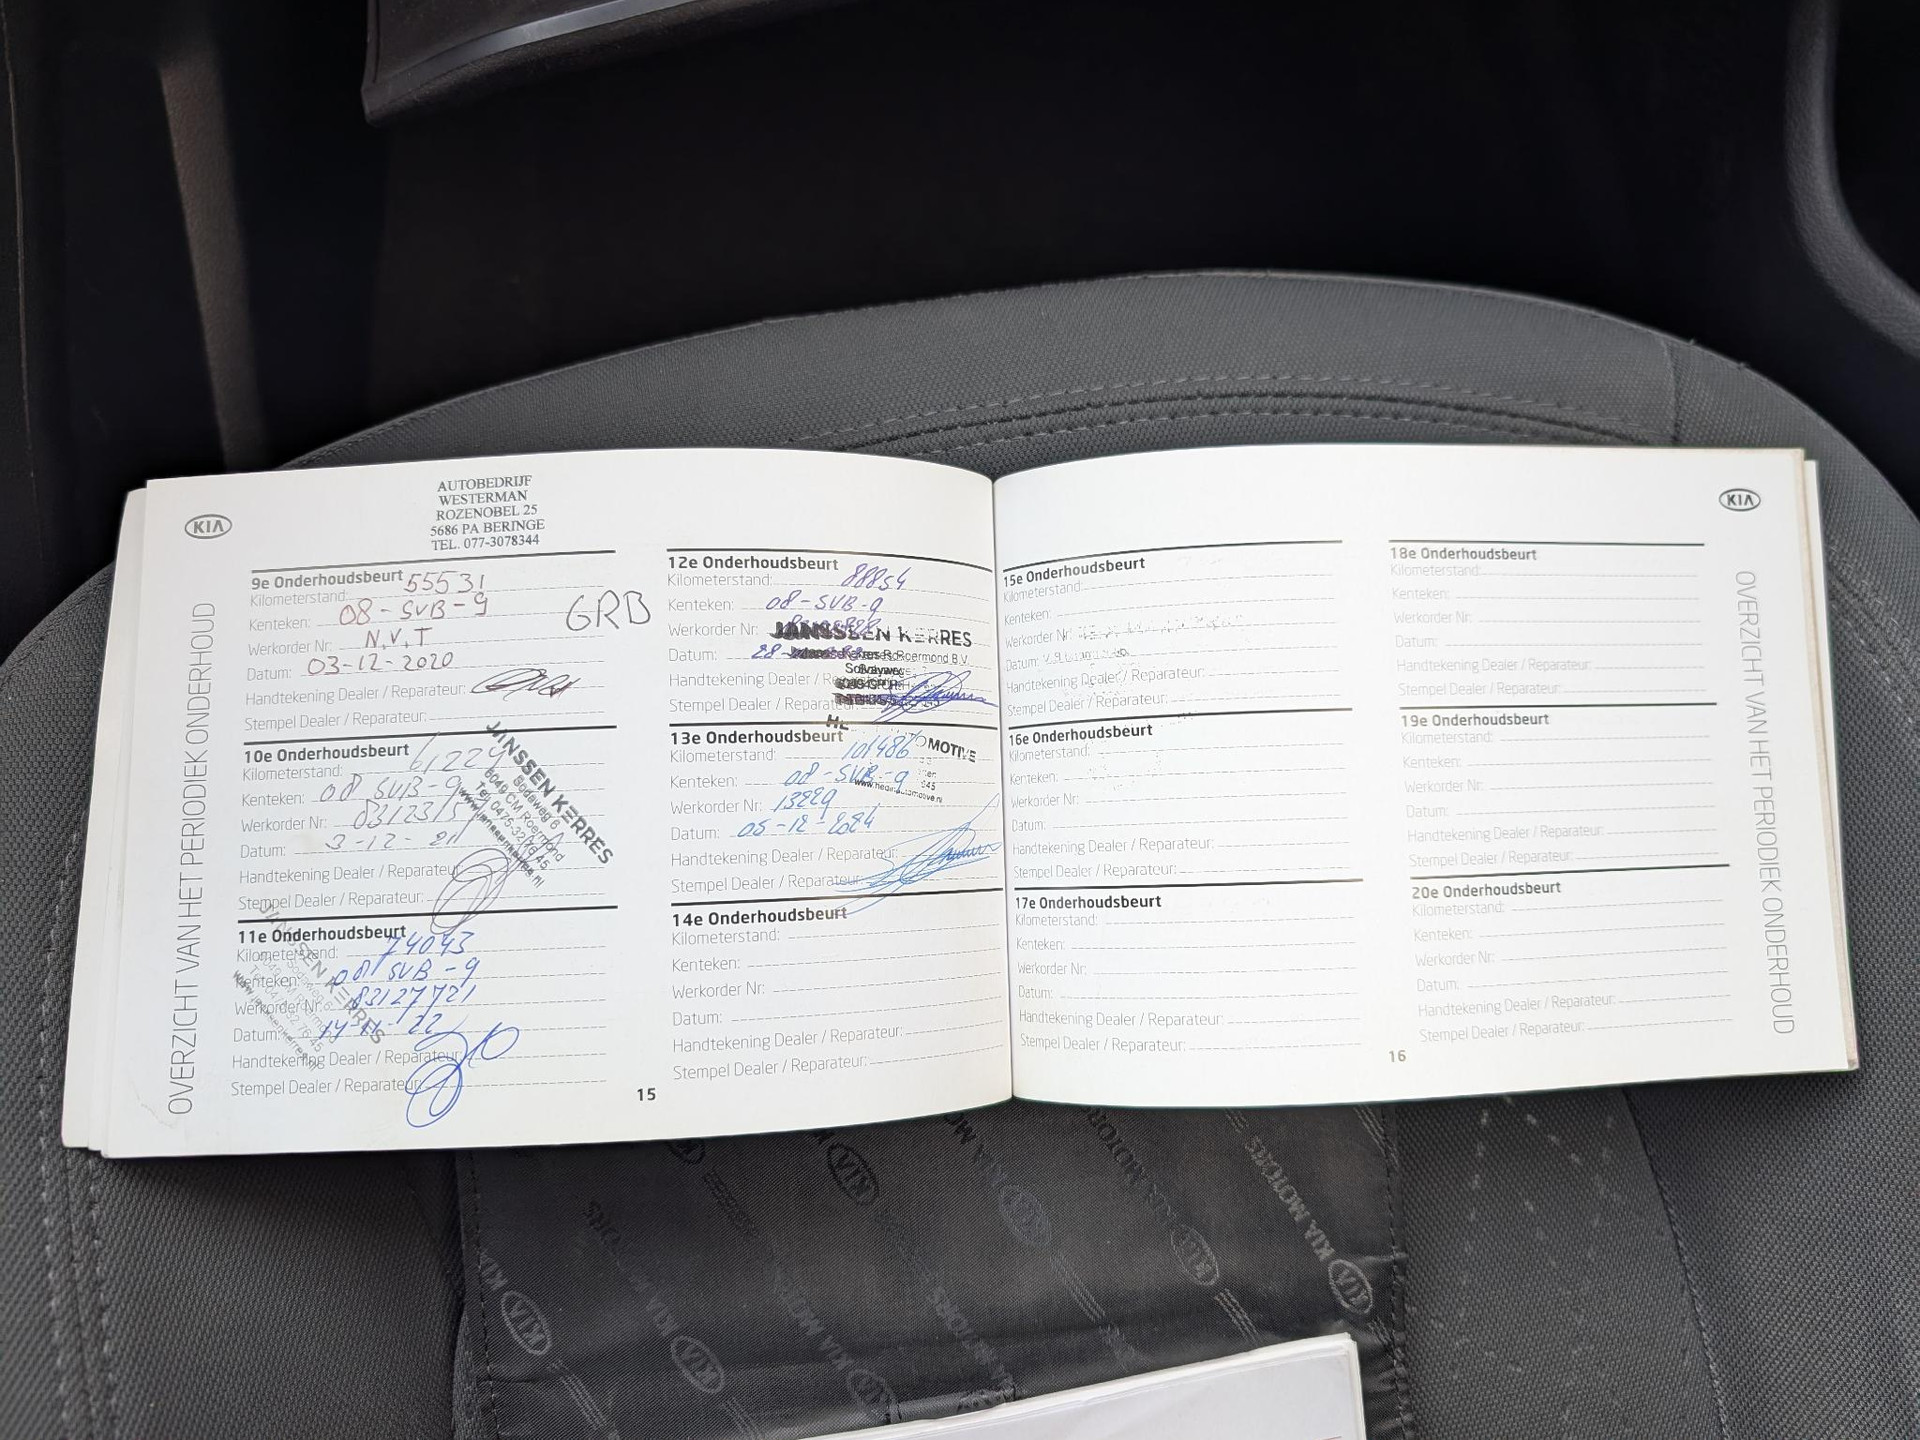 KIA
OVERZICHT VAN HET PERIODIEK ONDERHOUD
AUTOBEDRIJF
WESTERMAN
ROZENOBEL 25
5686 PA BERINGE
TEL. 077-3078344
9e Onderhoudsbeurt
Kilometerstand: 55531
Kenteken: 08-SVB-9
GRB
Werkorder Nr: N.V.T
Datum: 03-12-2020
Handtekening Dealer / Reparateur:
Stempel Dealer / Reparateur:
10e Onderhoudsbeurt
Kilometerstand: 61224
Kenteken: 08 SVB-9
Werkorder Nr:
Datum: 3-12-21
Handtekening Dealer / Reparateur
Stempel Dealer / Reparateur:
JANSSEN KERRES
Sodeweg 6
6049 CM Roermond
Tel. 0475-32 76 45
www.janssenkerres.nl
11e Onderhoudsbeurt
Kilometerstand: 74043
Kenteken: 08 SVB-9
Werkorder Nr: 83127721
Datum: 14-11-22
Handtekening Dealer / Reparateur:
Stempel Dealer / Reparateur:
JANSSEN KERRES
15
12e Onderhoudsbeurt
Kilometerstand: 88854
Kenteken: 08-SVB-9
Werkorder Nr:
JANSSEN KERRES
Datum: 28-
Roermond B.V.
Handtekening Dealer / Reparateur:
Stempel Dealer / Reparateur:
13e Onderhoudsbeurt
Kilometerstand: 101486
MOTIVE
Kenteken: 08-SVB-9
Werkorder Nr: 13229
Datum: 05-12-2024
Handtekening Dealer / Reparateur:
Stempel Dealer / Reparateur:
14e Onderhoudsbeurt
Kilometerstand:
Kenteken:
Werkorder Nr:
Datum:
Handtekening Dealer / Reparateur:
Stempel Dealer / Reparateur:
15e Onderhoudsbeurt
Kilometerstand:
Kenteken:
Werkorder Nr:
Datum:
Handtekening Dealer / Reparateur:
Stempel Dealer / Reparateur:
16e Onderhoudsbeurt
Kilometerstand:
Kenteken:
Werkorder Nr:
Datum:
Handtekening Dealer / Reparateur:
Stempel Dealer / Reparateur:
17e Onderhoudsbeurt
Kilometerstand:
Kenteken:
Werkorder Nr:
Datum:
Handtekening Dealer / Reparateur:
Stempel Dealer / Reparateur:
16
18e Onderhoudsbeurt
Kilometerstand:
Kenteken:
Werkorder Nr:
Datum:
Handtekening Dealer / Reparateur:
Stempel Dealer / Reparateur:
19e Onderhoudsbeurt
Kilometerstand:
Kenteken:
Werkorder Nr:
Datum:
Handtekening Dealer / Reparateur:
Stempel Dealer / Reparateur:
20e Onderhoudsbeurt
Kilometerstand:
Kenteken:
Werkorder Nr:
Datum:
Handtekening Dealer / Reparateur:
Stempel Dealer / Reparateur:
KIA
OVERZICHT VAN HET PERIODIEK ONDERHOUD
KIA MOTORS